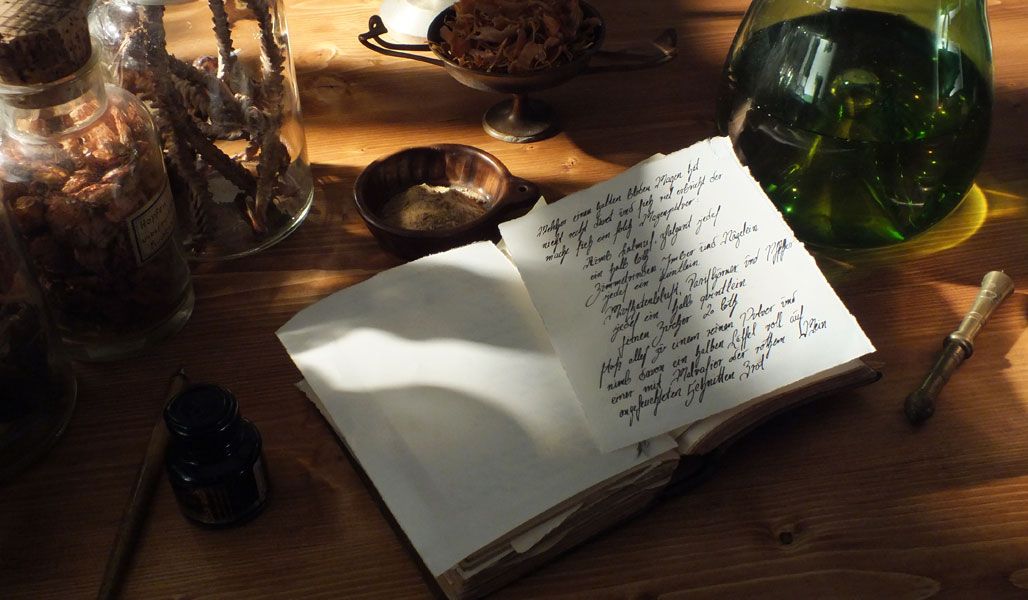 Welcher einen kalten blöden Magen hat
nicht recht dewet und sich viel erbricht der
mache sich ein solch Magenpulver:
Nimb Kalmus, Galgant jedes
ein halb loth
Zimmetrinden Imber und Nägelein
jedes ein quintlein
Muskatenblust, Parißkörner und Pfeffer
jedes ein halb quintlein
feinen Zucker 20 loth
stoß alles zu einem reinen Pulver und
nimb davon ein halben Löffel voll auf
einer mit Malvasier oder rothem Wein
angefeuchteten Schnitten Brot